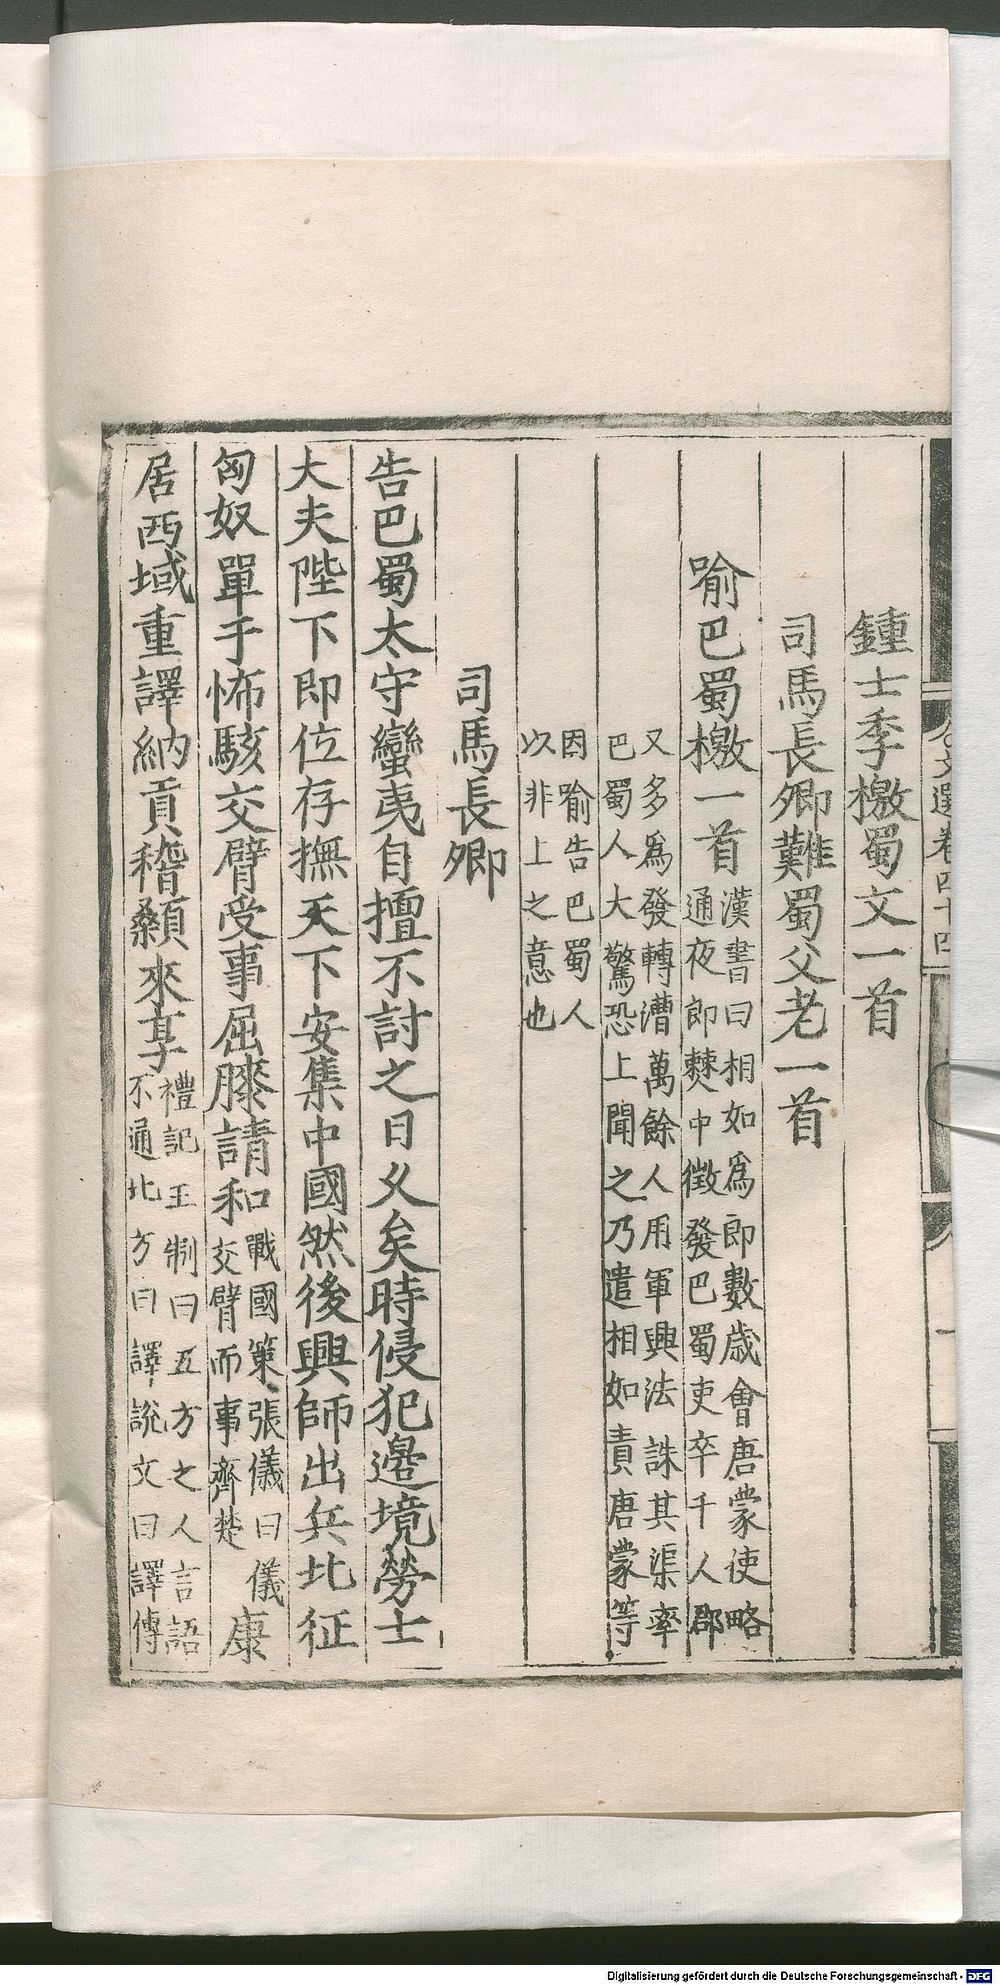 文選卷四十四
一
鍾士季檄蜀文一首
司馬長卿難蜀父老一首
喻巴蜀檄一首漢書曰相如爲郎數歳會唐蒙使略
通夜郎僰中徵發巴蜀吏卒千人郡
又多爲發轉漕萬餘人用軍興法誅其渠率
巴蜀人大驚恐上聞之乃遣相如責唐蒙等
因喻告巴蜀人
以非上之意也
司馬長卿
告巴蜀太守蠻夷自擅不討之日久矣時侵犯邊境勞士
大夫陛下即位存撫天下安集中國然後興師出兵北征
匈奴單于怖駭交臂受事屈膝請和戰國策張儀曰儀
交臂而事齊楚康
居西域重譯納貢稽顙來享禮記王制曰五方之人言語
不通北方曰譯說文曰譯傳
Digitalisierung gefördert durch die Deutsche Forschungsgemeinschaft - DFG